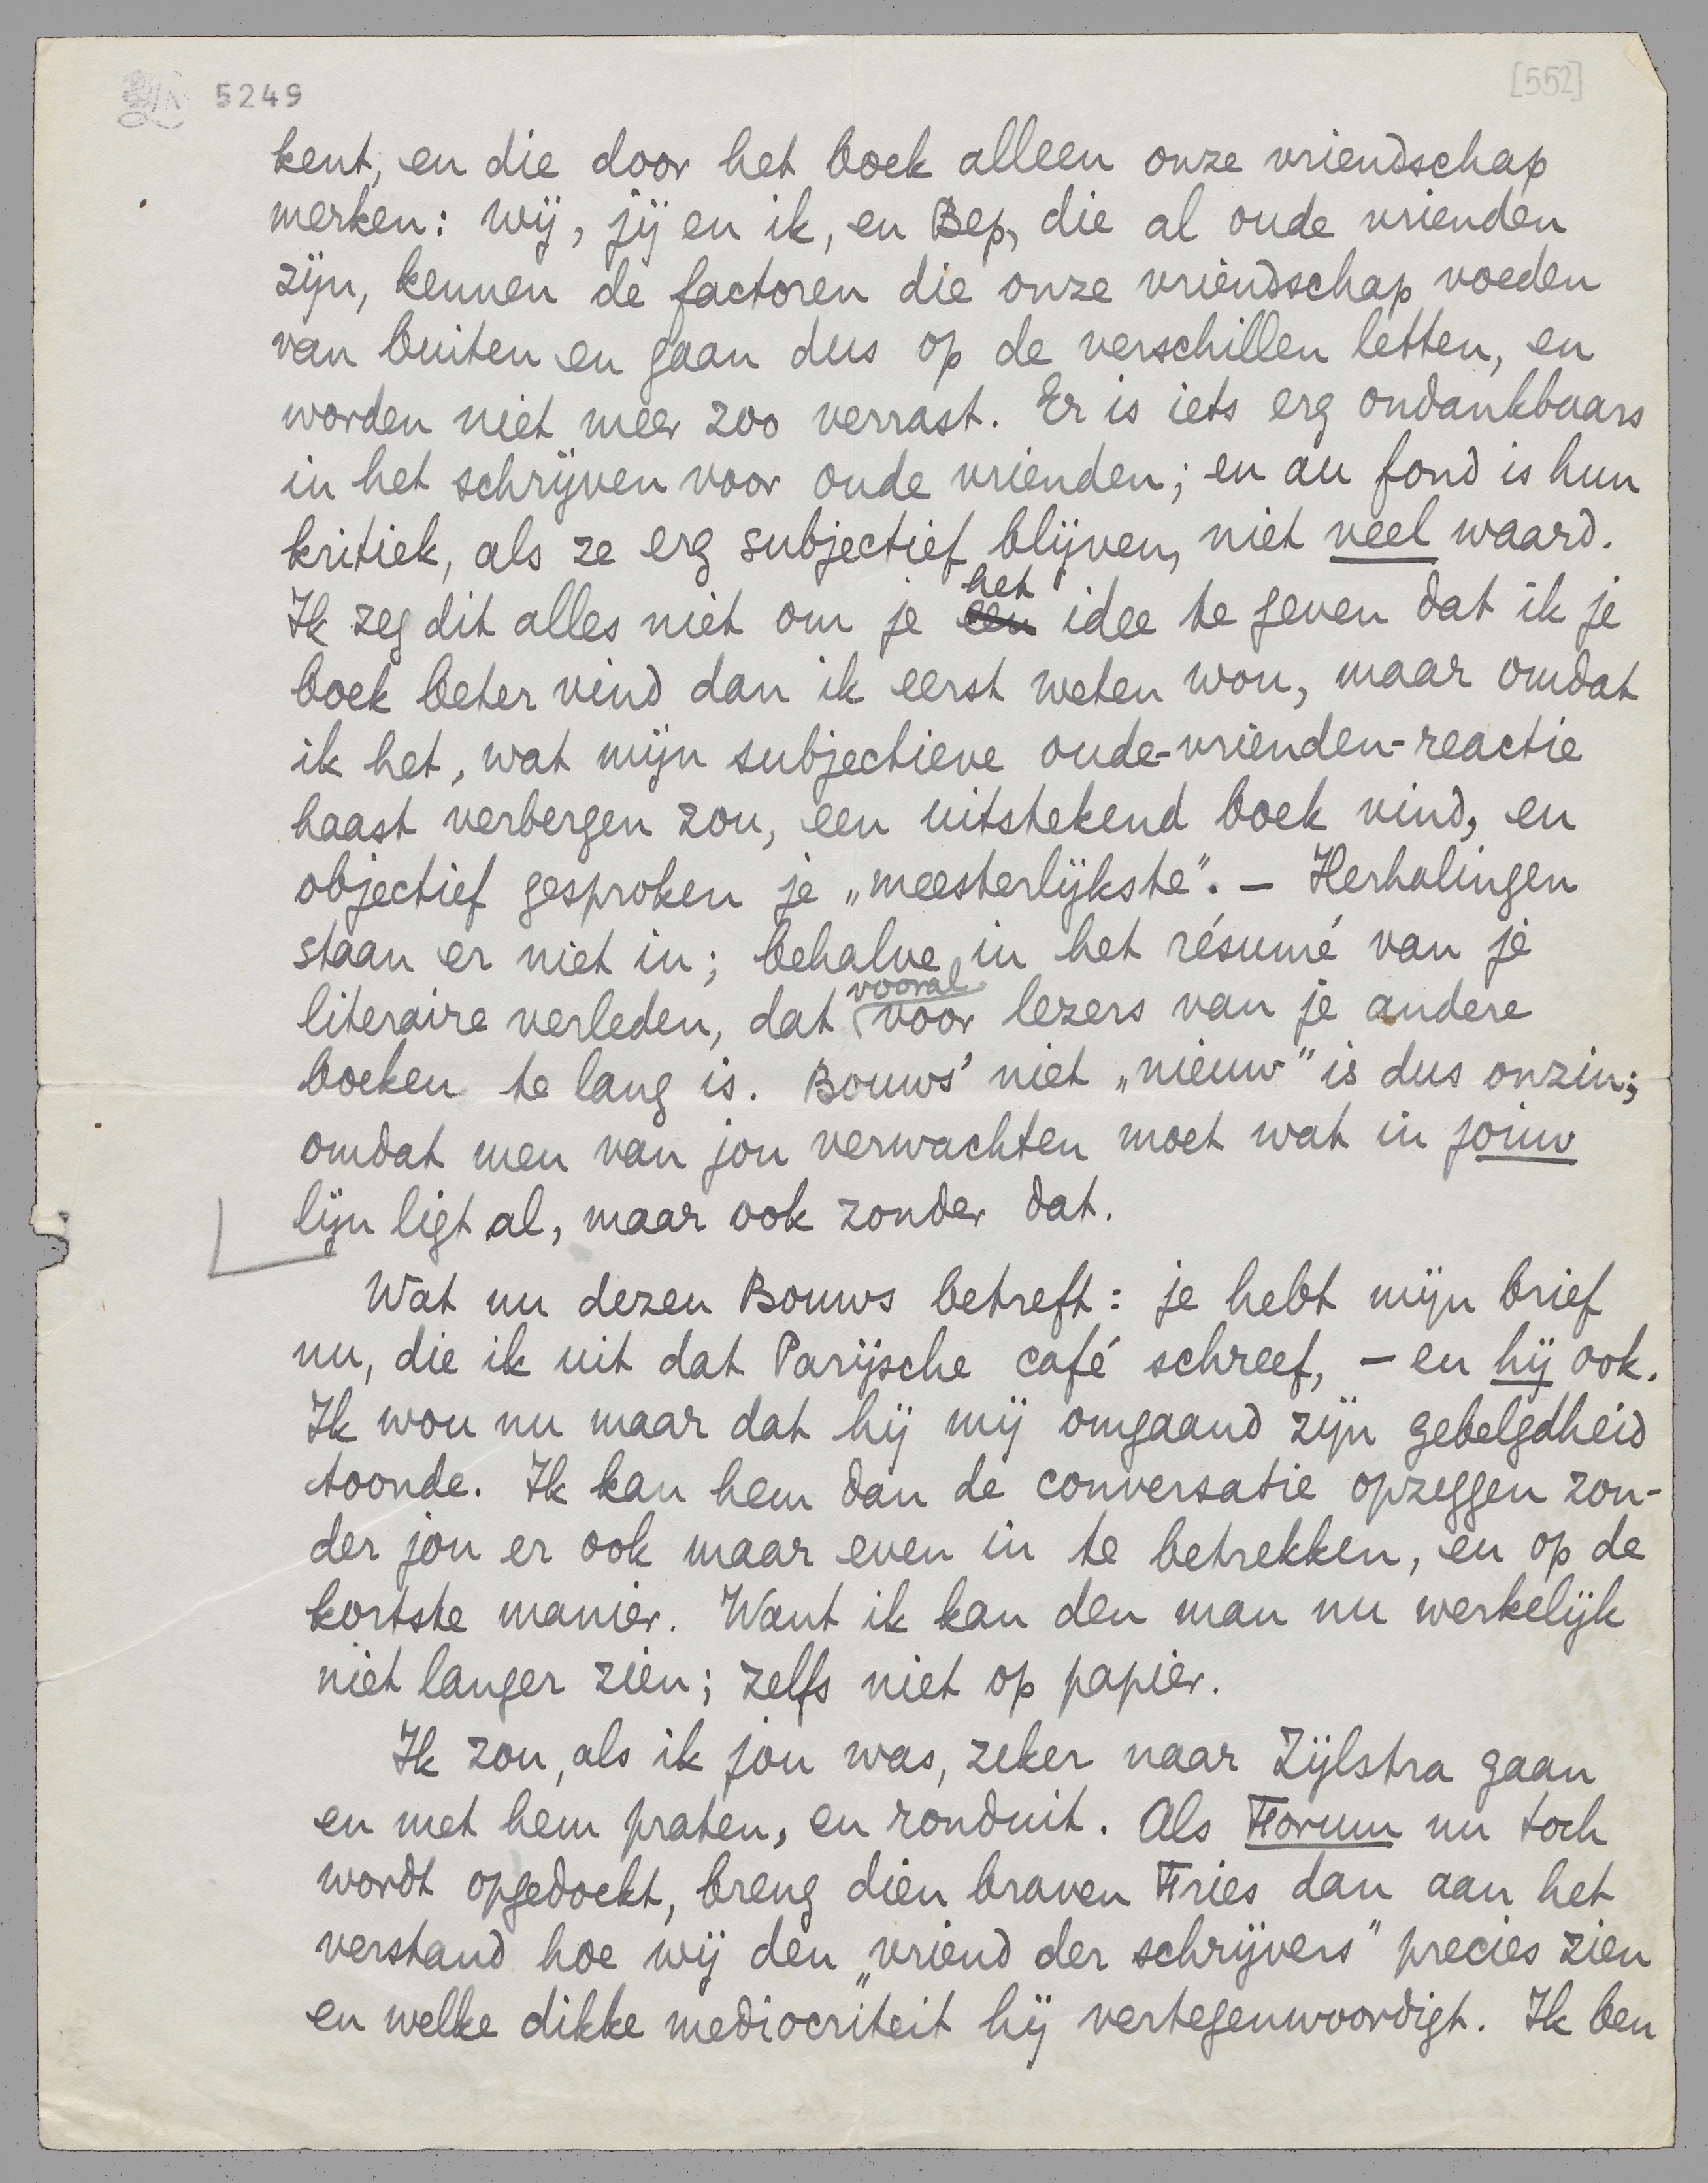 5249
[552]
kent, en die door het boek alleen onze vriendschap
merken: wij, jij en ik, en Bep, die al oude vrienden
zijn, kennen de factoren die onze vriendschap voeden
van buiten en gaan dus op de verschillen letten, en
worden niet meer zoo verrast. Er is iets erg ondankbaars
in het schrijven voor oude vrienden; en au fond is hun
kritiek, als ze erg subjectief blijven, niet veel waard.
het
Ik zeg dit alles niet om je een idee te geven dat ik je
boek beter vind dan ik eerst weten wou, maar omdat
ik het, wat mijn subjectieve oude-vrienden-reactie
haast verbergen zou, een uitstekend boek vind, en
objectief gesproken je „meesterlijkste". — Herhalingen
staan er niet in; behalve in het résumé van je
vooral
literaire verleden, dat voor lezers van je andere
boeken te lang is. Bouws' niet „nieuw" is dus onzin;
omdat men van jou verwachten moet wat in jouw
lijn ligt al, maar ook zonder dat.
Wat nu dezen Bouws betreft: je hebt mijn brief
nu, die ik uit dat Parijsche café schreef, — en hij ook.
Ik wou nu maar dat hij mij omgaand zijn gebelgdheid
toonde. Ik kan hem dan de conversatie opzeggen zon-
der jou er ook maar even in te betrekken, en op de
kortste manier. Want ik kan den man nu werkelijk
niet langer zien; zelfs niet op papier.
Ik zou, als ik jou was, zeker naar Zijlstra gaan
en met hem praten, en ronduit. Als Forum nu toch
wordt opgedoekt, breng dien braven Fries dan aan het
verstand hoe wij den „vriend der schrijvers" precies zien
en welke dikke mediocriteit hij vertegenwoordigt. Ik ben